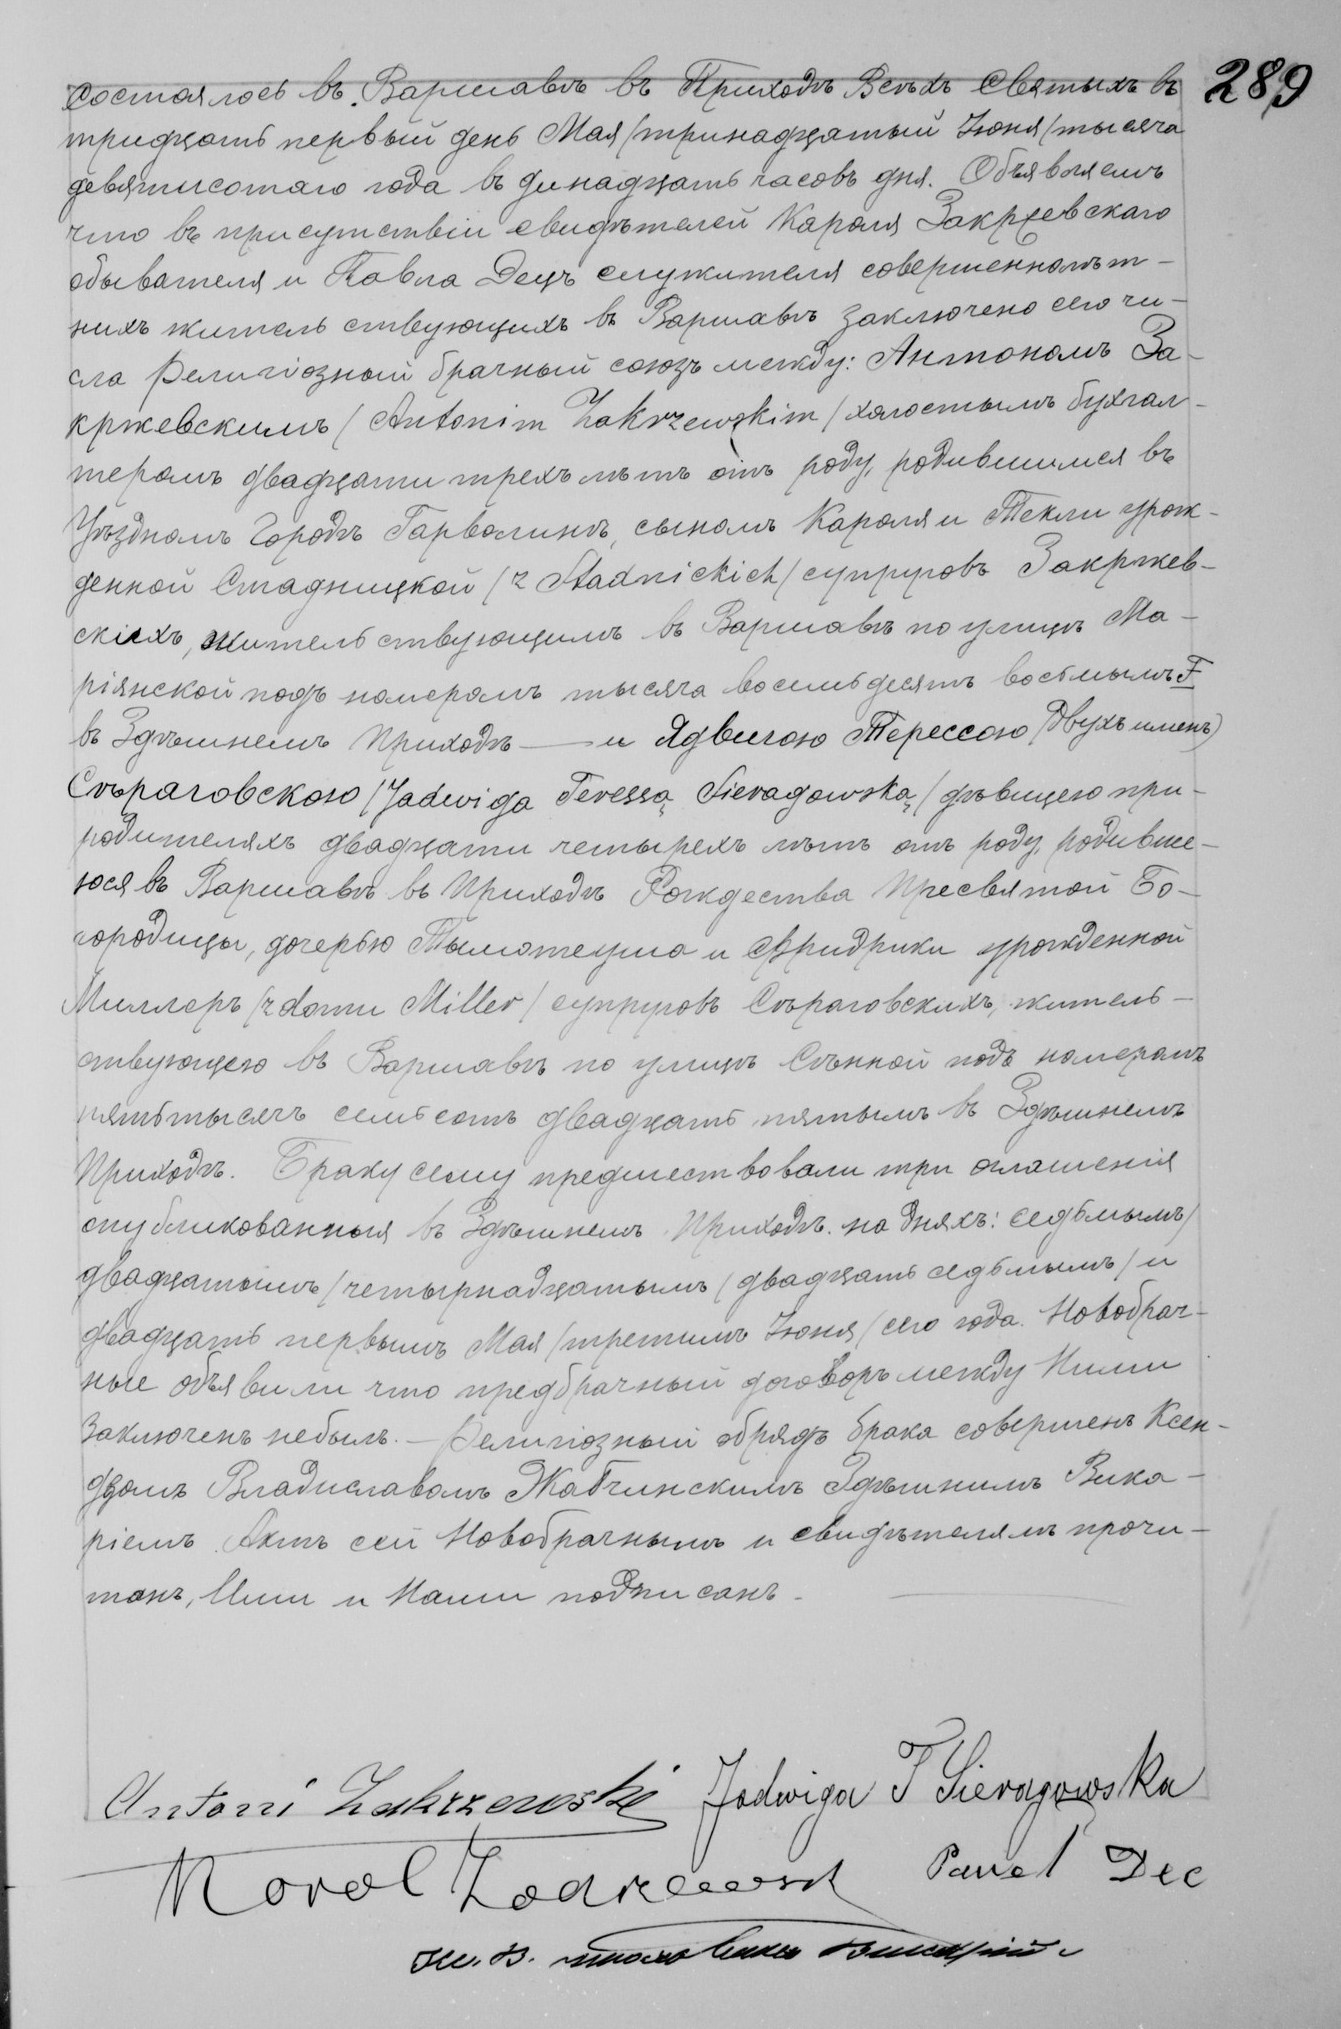 289
Состоялось въ Варшавѣ въ Приходѣ Всѣхъ Святыхъ въ
тридцать первый день Мая /тринадцатый Іюня/ тысяча
девятисотаго года въ динадцать часовъ дня. Объявляемъ
что въ присутствіи свидѣтелей Кароля Закржевскаго
обывателя и Павла Децъ служителя совершеннолѣт-
нихъ жительствующихъ въ Варшавѣ заключено сего чи-
сла религіозный брачный союзъ между: Антономъ За-
кржевскимъ /Antonim Zakrzewskim/ холостымъ бухгал-
теромъ двадцати трехъ лѣтъ отъ роду, родившимся въ
Уѣздномъ Городѣ Гарволинѣ, сыномъ Кароля и Текли урож-
денной Стадницкой /z Stadnickich/ супруговъ Закржев-
скихъ, жительствующимъ въ Варшавѣ по улицѣ Ма-
ріянской подъ номеромъ тысяча восемьдесятъ восьмымъ F
въ Здѣшнемъ Приходѣ — и Ядвигою Терессою /двухъ именъ/
Сѣраговскою /Jadwigą Teressą Sieragowską/ дѣвицею при-
родителяхъ двадцати четырехъ лѣтъ отъ роду, родивше-
юся въ Варшавѣ въ Приходѣ Рождества Пресвятой Бо-
городицы, дочерью Тымотеуша и Фридрики урожденной
Миллеръ /z domu Miller/ супруговъ Сѣраговскихъ, житель-
ствующею въ Варшавѣ по улицѣ Сѣнной подъ номеромъ
пятьтысячъ семьсотъ двадцать пятымъ въ Здѣшнемъ
Приходѣ. Браку сему предшествовали три оглашенія
опубликованныя въ Здѣшнемъ Приходѣ на дняхъ: седьмымъ/
двадцатымъ/ четырнадцатымъ /двадцать седьмымъ/ и
двадцать первымъ Мая /третимъ Іюня/ сего года. Новобрач-
ные объявили что предбрачный договоръ между Ними
заключенъ небылъ. — Религіозный обрядъ брака совершенъ Ксен-
дзомъ Владиславомъ Жабчинскимъ Здѣшнимъ Вика-
ріемъ. Актъ сей Новобрачнымъ и свидѣтелямъ прочи-
танъ, Ими и Нами подписанъ.
Antoni Zakrzewski Jadwiga T Sieragowska
Karol Zakrzewski Paweł Dec